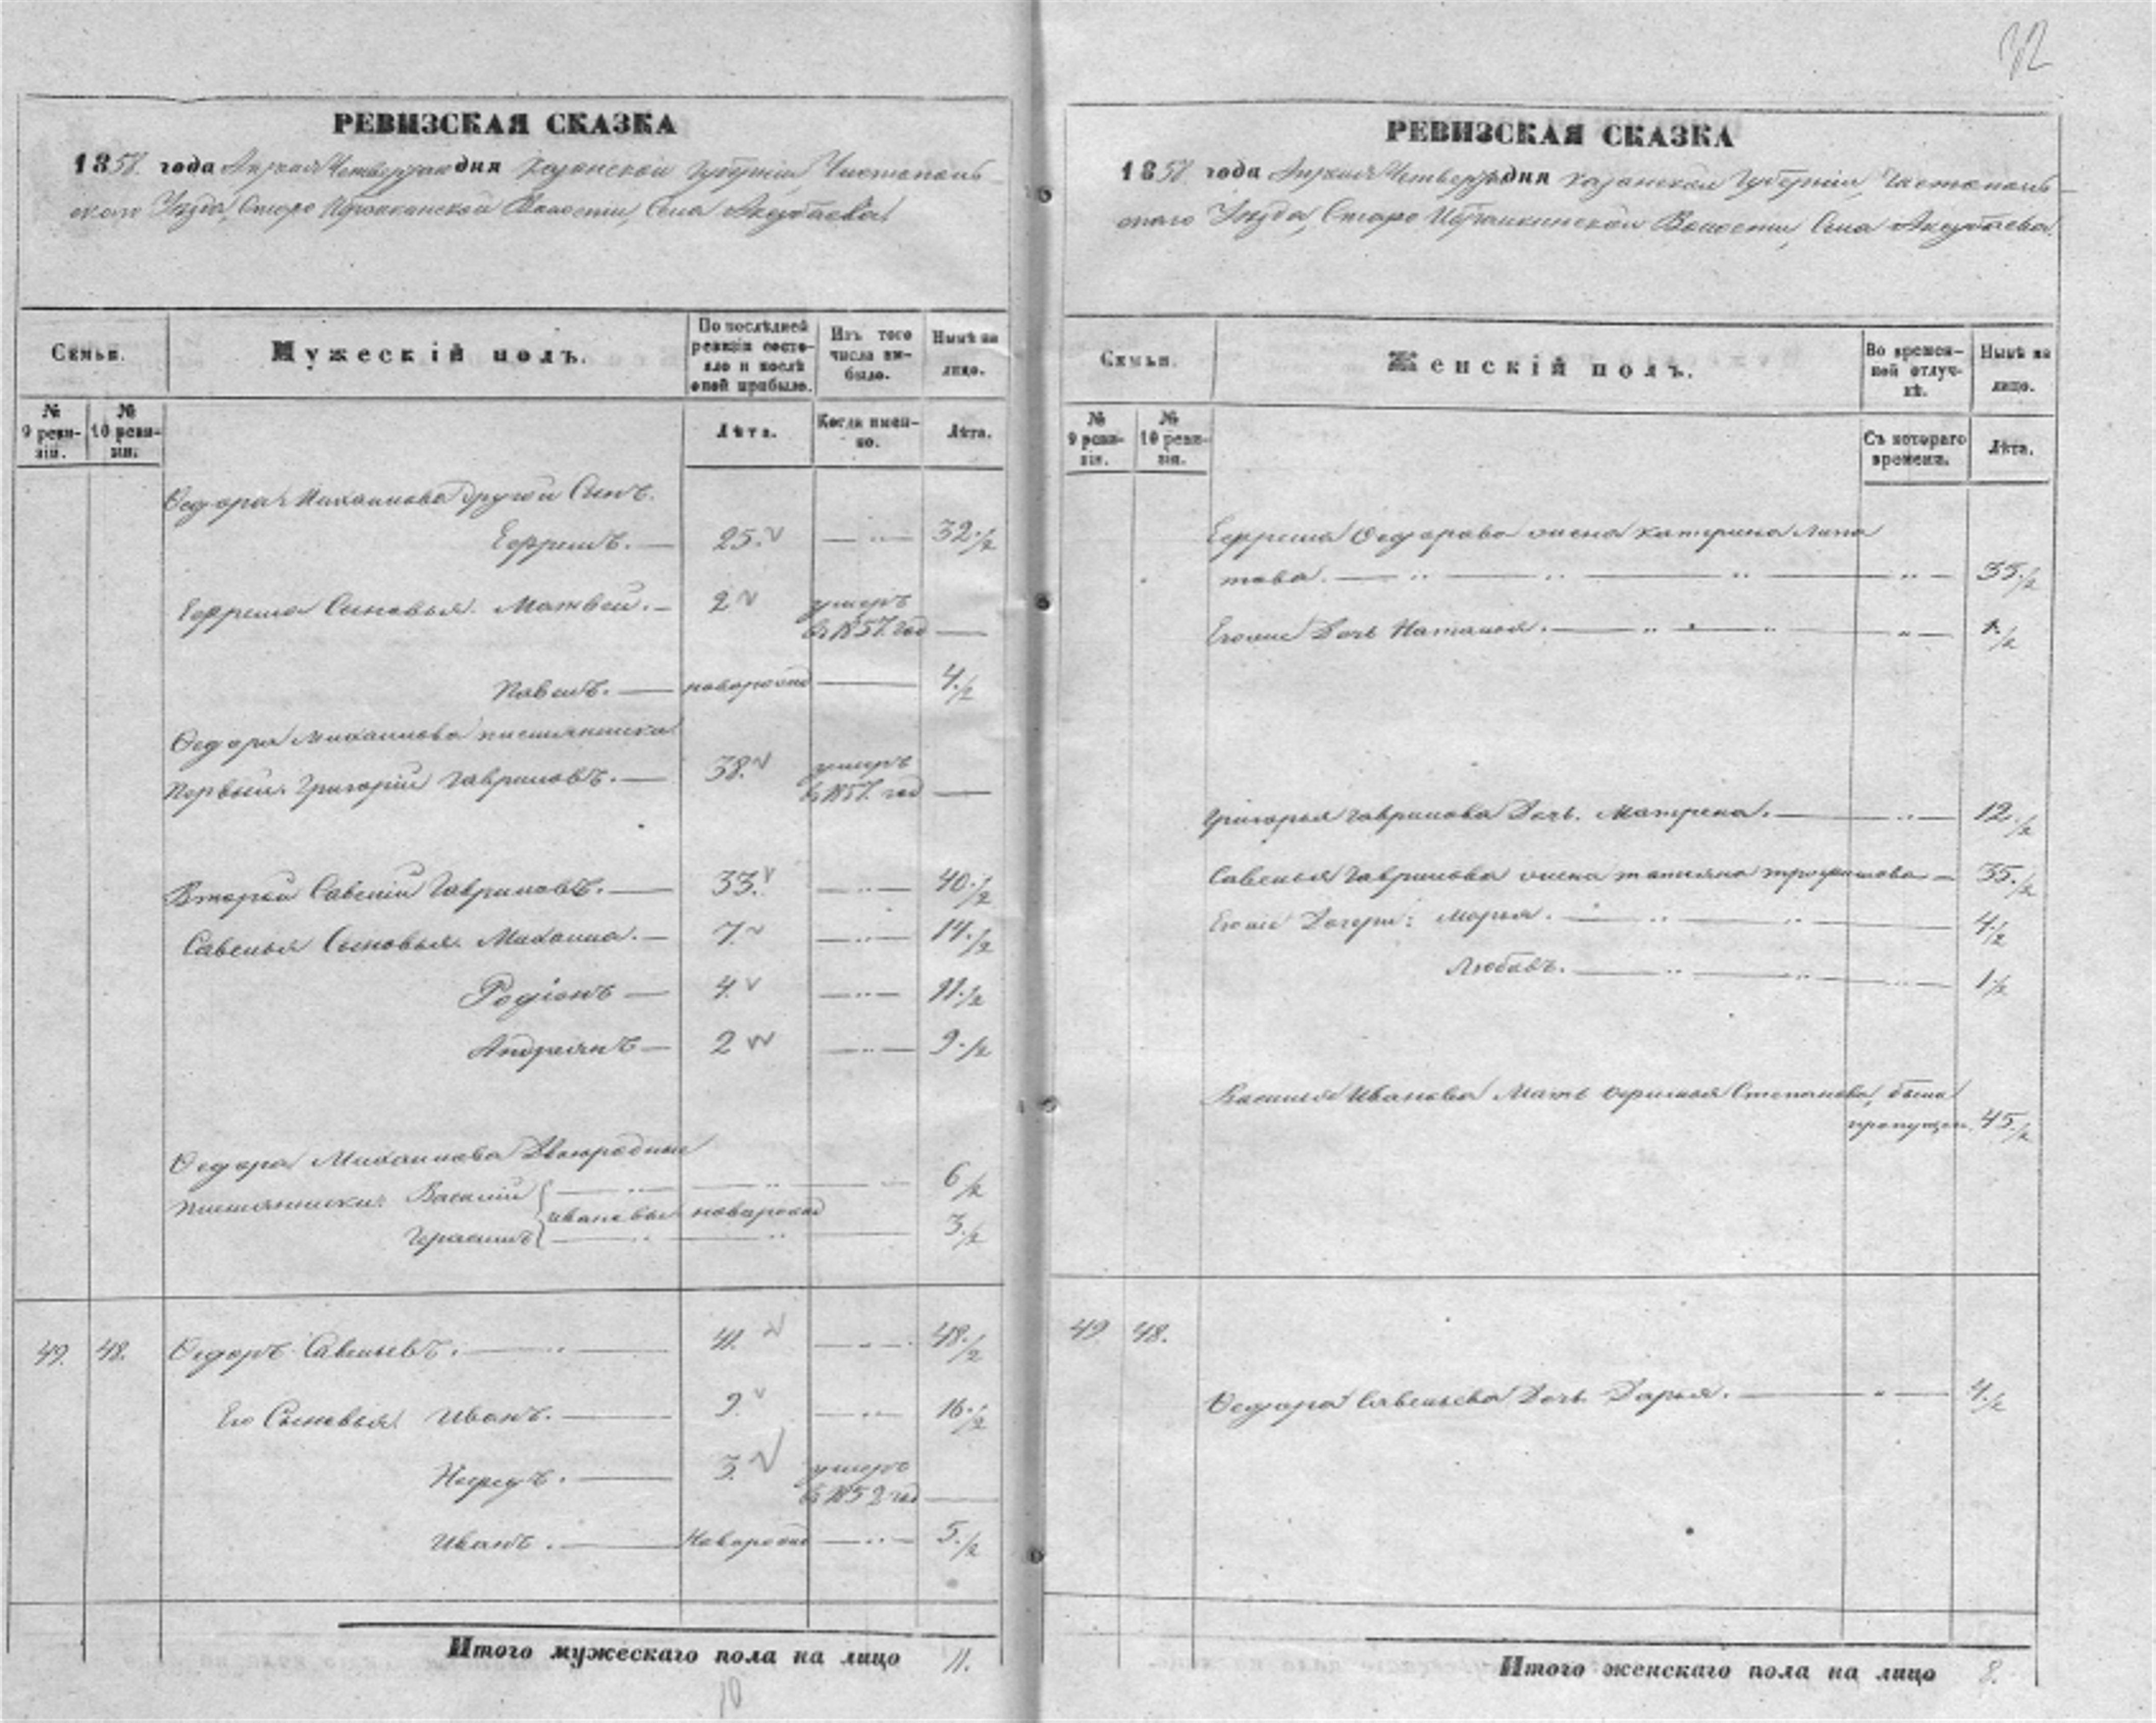 32
РЕВИЗСКАЯ СКАЗКА
1858 года Апреля Четвертаго дня Казанской Губерніи, Чистополь-
скаго Уезда, Старо Ибрайкинской Волости, Села Акзубаева
Семьи.
Мужескій полъ.
По послѣдней ревизіи состояло и послѣ оной прибыло.
Изъ того числа выбыло.
Нынѣ на лицо.
№ 9 ревизіи.
№ 10 ревизіи.
Лѣта.
Когда именно.
Лѣта.
Ѳедора Михайлова другой Сынъ.
Ефремъ. 25. 32 1/2
Ефрема Сыновья. Матвей. 2 умеръ
въ 1857. год
Павелъ. новорожд 4 1/2
Ѳедора Михайлова племянники
Первый. Григорій Гавриловъ. 38. умеръ
въ 1857. год
Второй Савелій Гавриловъ. 33. 40 1/2
Савелья Сыновья. Михайла. 7. 14 1/2
Родіонъ 4. 11 1/2
Андреянъ 2 9 1/2
Ѳедора Михайлова Двоюродные
племянники: Василій 6 1/2
Ивановы новорожд
Герасимъ 3 1/2
49. 48. Ѳедоръ Савельевъ. 41. 48 1/2
Его Сыновья Иванъ. 9. 16 1/2
Нефедъ. 3. умеръ
въ 1852 год
Иванъ. Новорожд 5 1/2
Итого мужескаго пола на лицо 11.
10
РЕВИЗСКАЯ СКАЗКА
1858 года Апреля Четвертаго дня Казанской Губерніи, Чистополь-
скаго Уезда, Старо Ибрайкинской Волости, Села Акзубаева.
Семьи.
Женскій полъ.
Во временной отлучкѣ.
Нынѣ на лицо.
№ 9 ревизіи.
№ 10 ревизіи.
Съ котораго времени.
Лѣта.
Ефрема Ѳедорова жена Катерина Липа
това. 35 1/2
Егоже Дочь Наталья. 1 1/2
Григорья Гаврилова Дочь. Матрена. 12 1/2
Савелья Гаврилова жена Татьяна Трофимова 35 1/2
Егоже Дочери: Марья. 4 1/2
Любовь. 1 1/2
Василья Иванова Мать Степанова, была
пропущен. 45 1/2
49 48.
Ѳедора Савельева Дочь Дарья. 4 1/2
Итого женскаго пола на лицо 8.